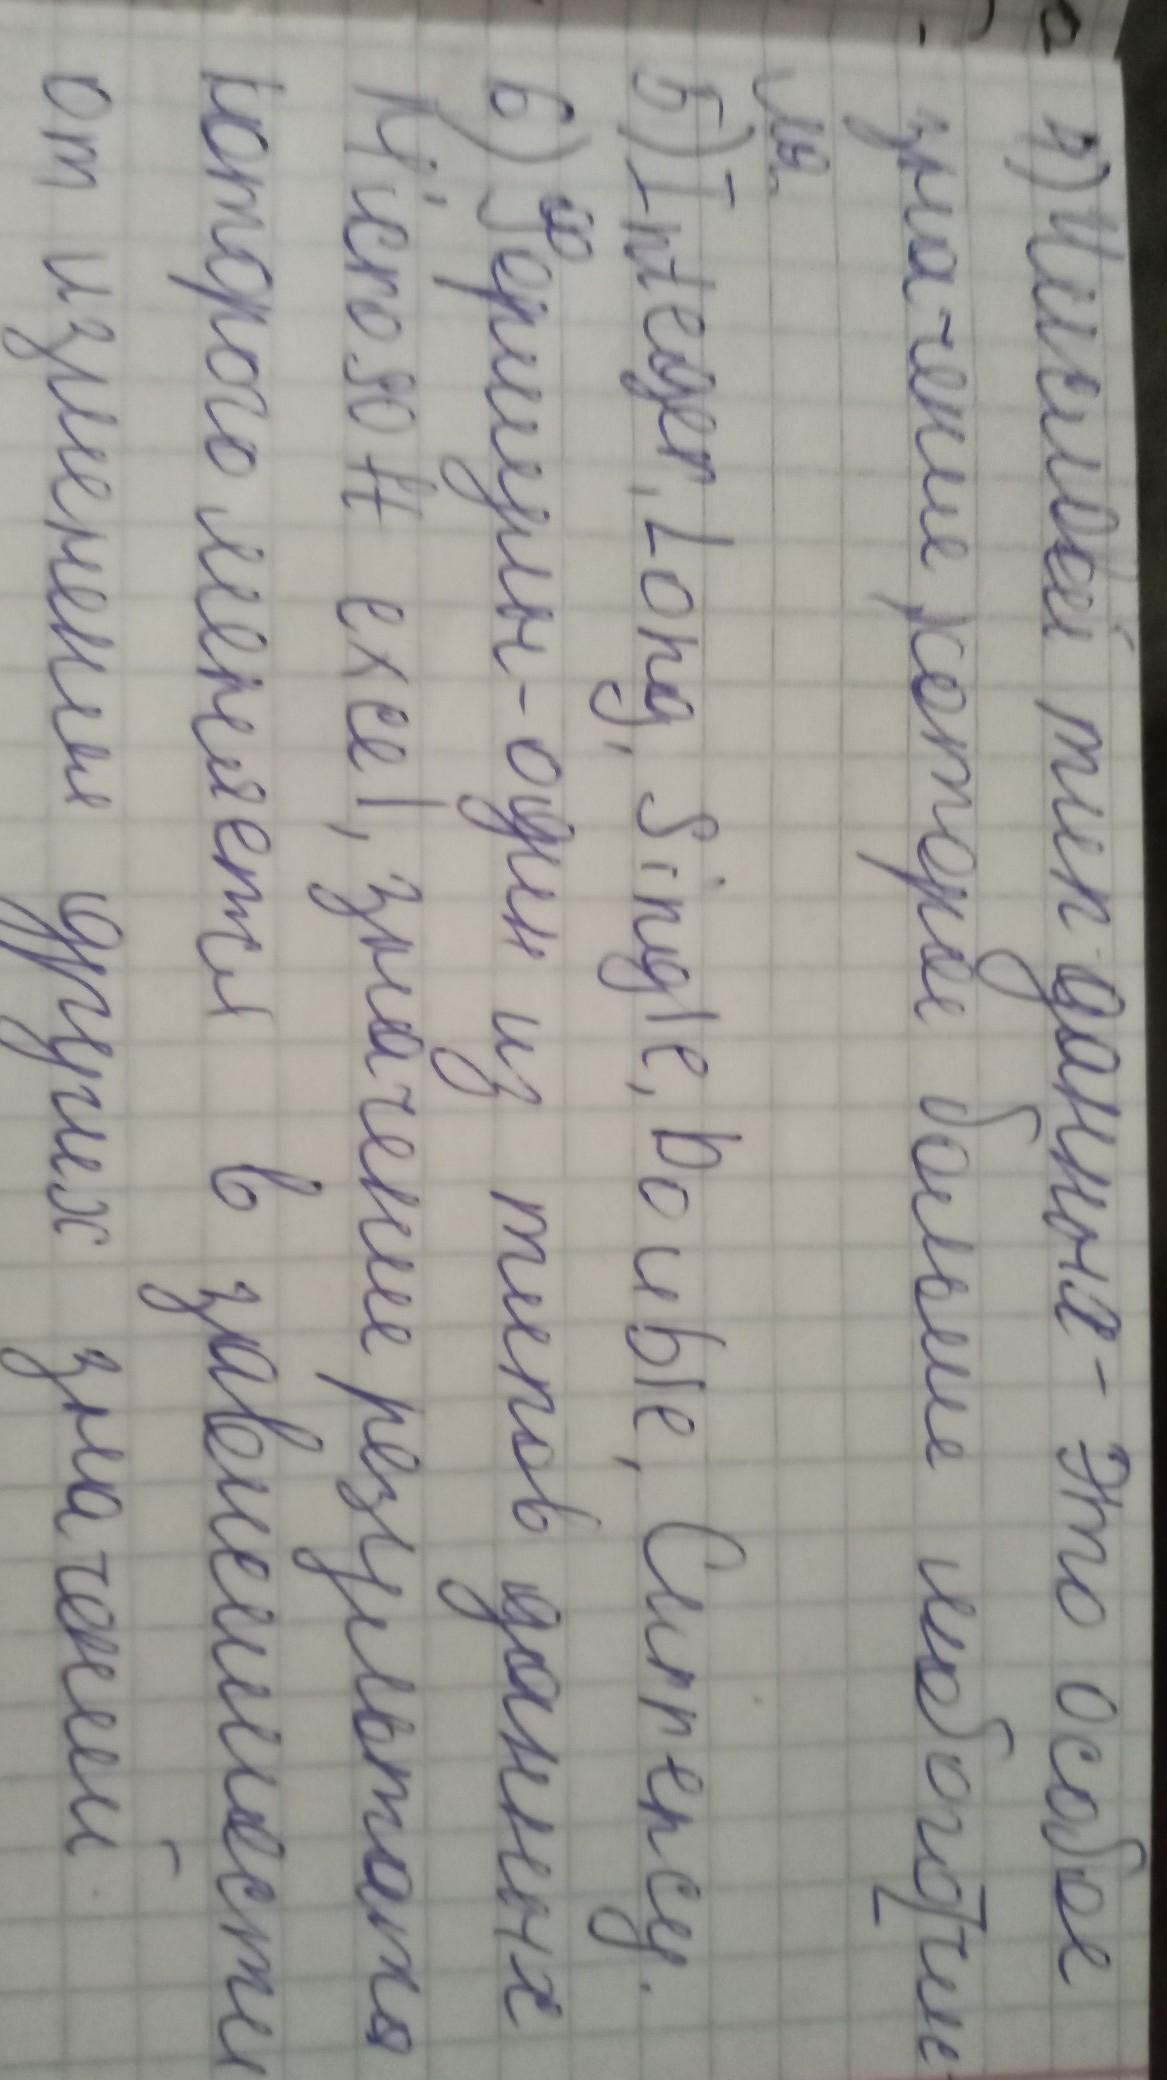 в) Числовой тип данные - Это особое
значение которые больше необотие
мы.
5) Integer, Long, Single, Double, Currency.
6) Формулы - один из типов данных
Microsoft excel, значение результата
которого меняется в зависимости
от изменения других значений.